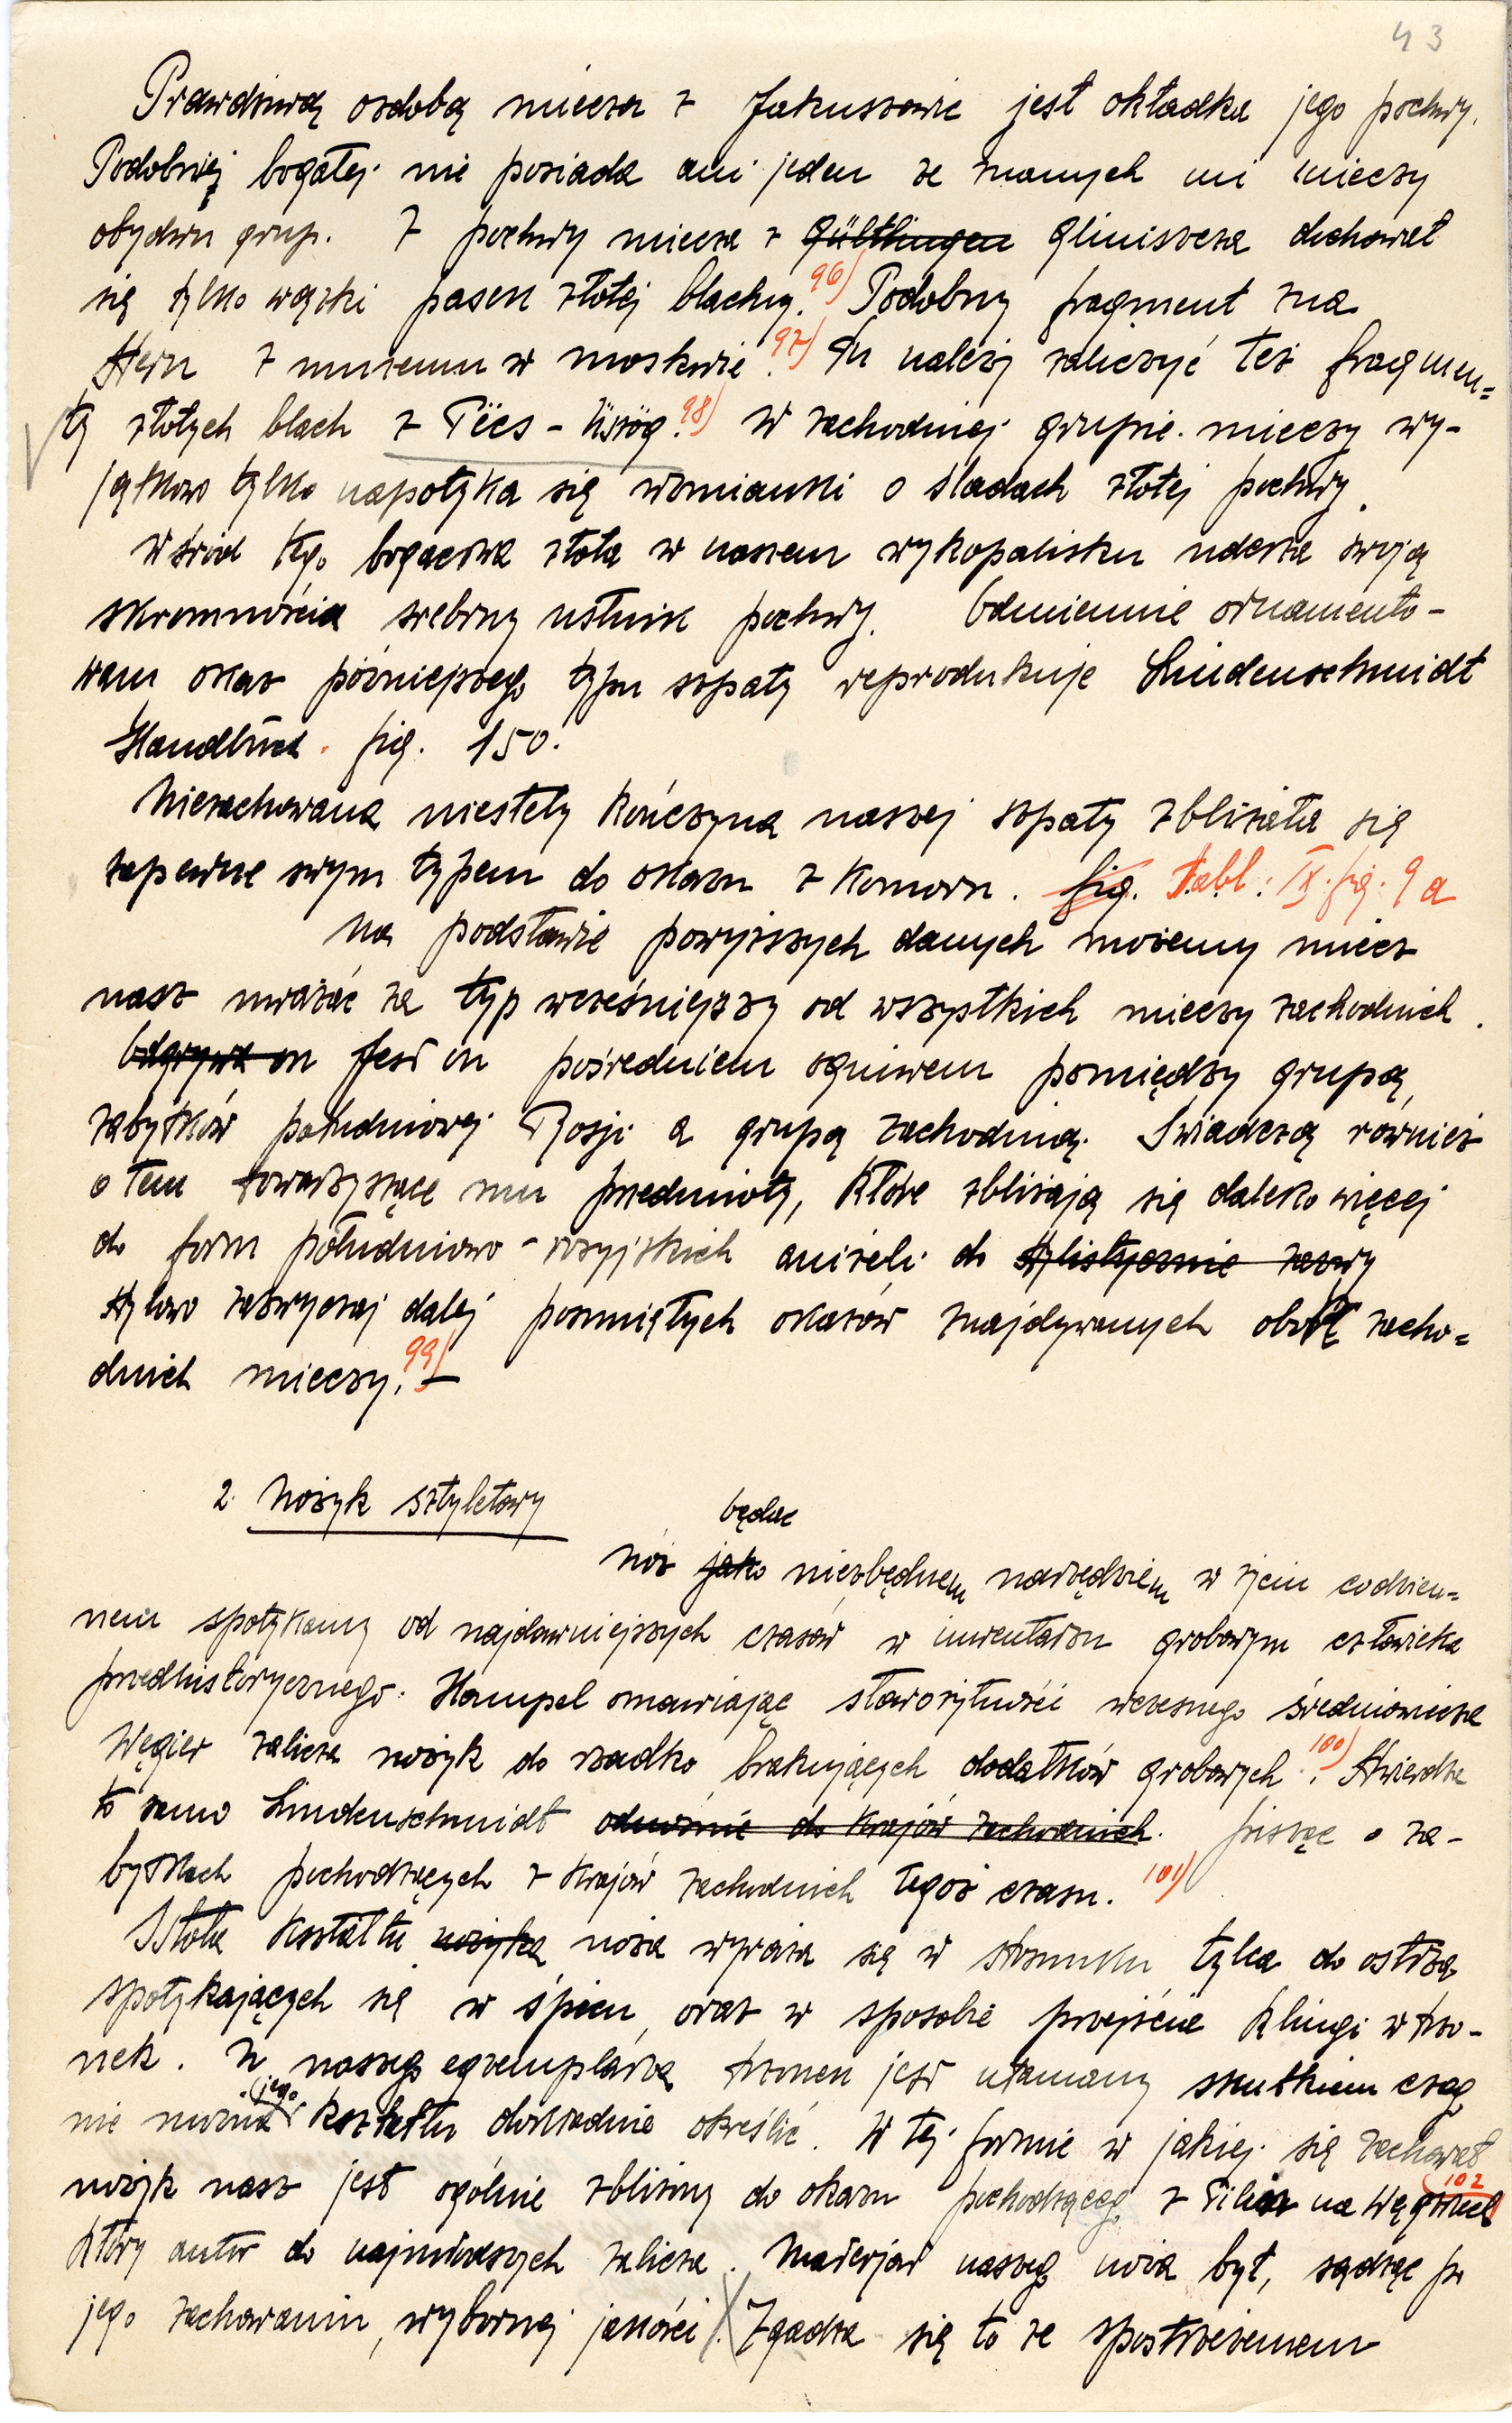 43
Prawdziwą ozdobą miecza z Jakuszowic jest okładka jego pochwy.
Podobniej bogatej nie posiada ani jeden ze znanych mi mieczy
obydwu grup. Z pochwy miecza z Gültlingen Gliniszcza dochował
się tylko wązki pasek złotej blachy.96) Podobny fragment zna
Stern z muzeum w Moskwie.97) Tu należy zaliczyć też fragmen=
ty złotych blach z Pëcs-Üszög.98) W zachodniej grupie mieczy wy-
jątkowo tylko napotyka się wzmianki o śladach złotej pochwy.
Wśród tego bogactwa złota w naszem wykopalisku uderza swoją
skromnością srebrny ustnik pochwy. Odmiennie ornamento-
wany okaz późniejszego typu szpaty reprodukuje Lindenschmidt
Handbuch. fig. 150.
Niezachowana niestety kończyna naszej szpaty zbliżała się
zapewne swym typem do okazu z Komorn. fig. Tabl: IX. fig. 9 a
Na podstawie powyższych danych możemy miecz
nasz uważać za typ wcześniejszy od wszystkich mieczy zachodnich.
Odgrywa on Jest on pośredniem ogniwem pomiędzy grupą
zabytków południowej Rosji a grupą zachodnią. Świadczą również
o tem towarzyszące mu przedmioty, które zbliżają się daleko więcej
do form południowo-rosyjskich aniżeli do stylistycznie zazwy
stylowo zazwyczaj dalej posuniętych okazów znajdywanych obok zacho=
dnich mieczy.99) —
2. Nożyk sztyletowy
będąc
Nóż jako niezbędnem narzędziem w życiu codzien=
nem spotykamy od najdawniejszych czasów w inwentarzu grobowym człowieka
przedhistorycznego. Hampel omawiając starożytności wczesnego średniowiecza
Węgier zalicza nożyk do rzadko brakujących dodatków grobowych.100) Stwierdza
to samo Lindenschmidt odnośnie do krajów zachodnich. pisząc o za-
bytkach pochodzących z krajów zachodnich tegoż czasu.101)
Istota kształtu nożyka noża wyraża się w stosunku tylca do ostrza
spotykających się w śpicu, oraz w sposobie przejścia klingi w trzo-
nek. U naszego egzemplarza trzonek jest ułamany skutkiem czego
jego
nie można kształtu dokładnie określić. W tej formie w jakiej się zachował
nożyk nasz jest ogólnie zbliżony do okazu pochodzącego z na Węgrzech 102
który autor do najmłodszych zalicza. Materjał naszego noża był, sądząc po
jego zachowaniu, wybornej jakości. Zgadza się to ze spostrzeżeniem